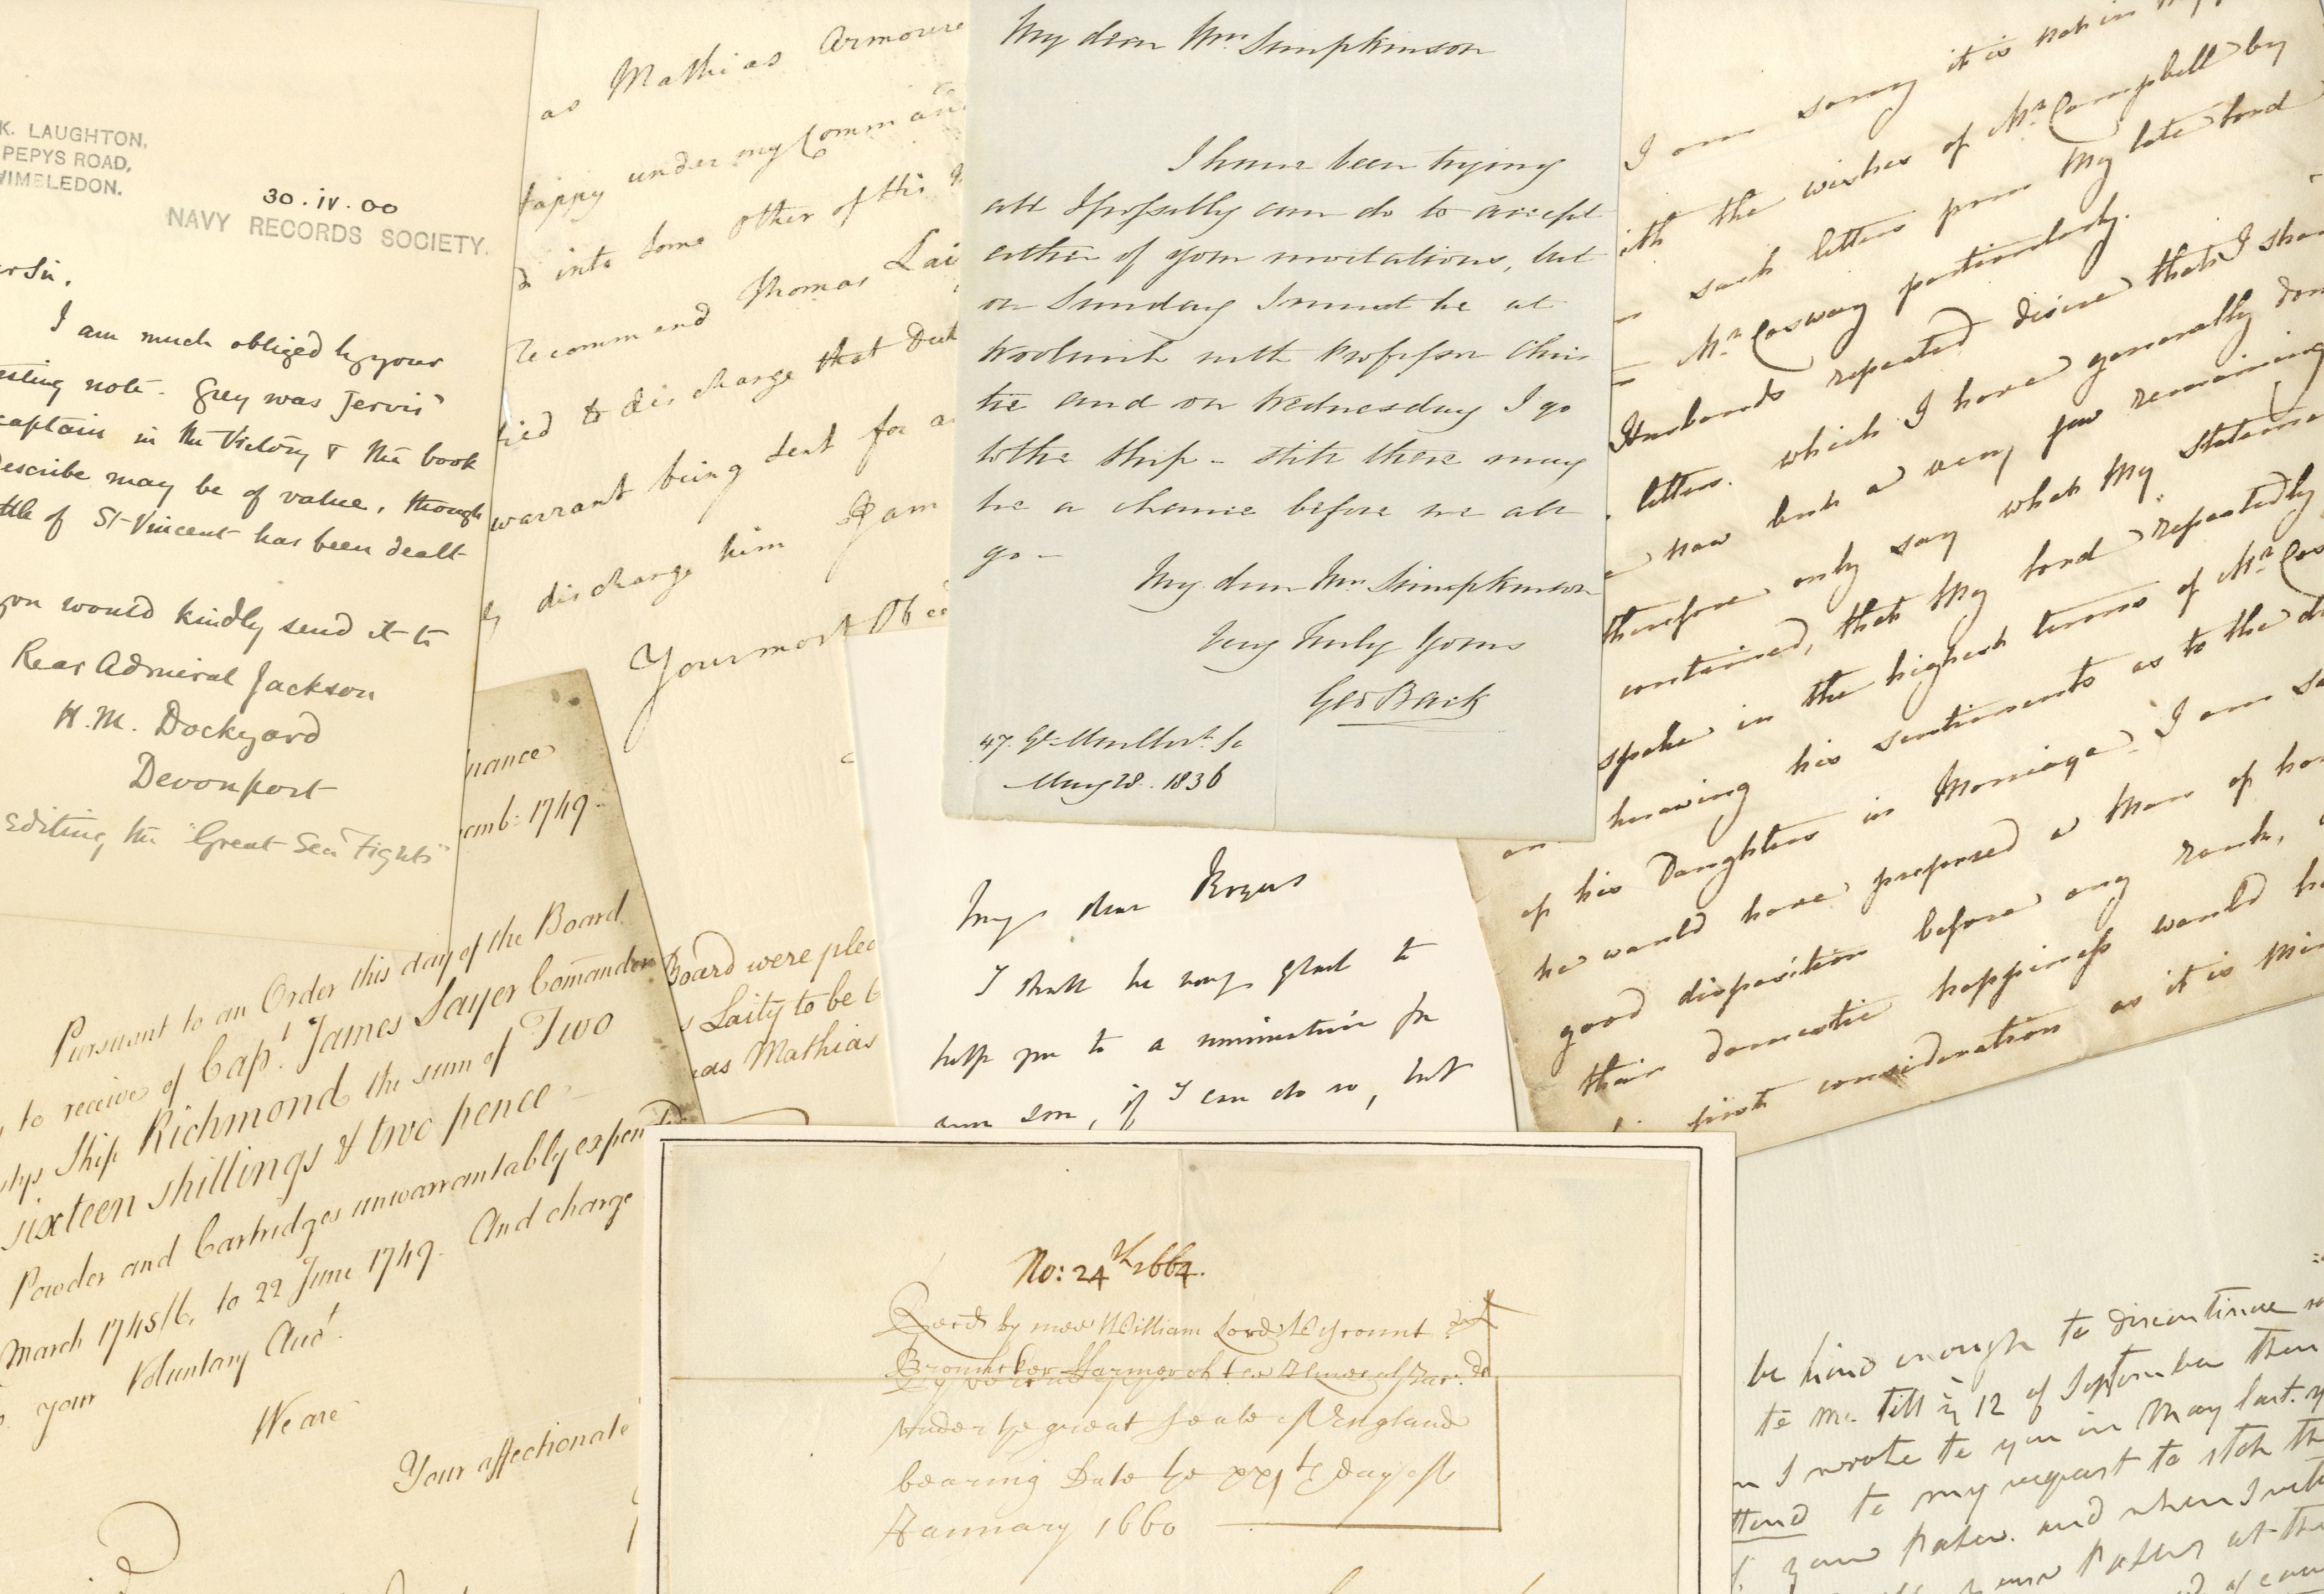 K. LAUGHTON,
PEPYS ROAD,
WIMBLEDON.
30.IV.00
NAVY RECORDS SOCIETY.
Sir,
I am much obliged by your
note. Grey was Jervis'
captain in the Victory & the book
describe may be of value, though
of St Vincent has been dealt
you would kindly send it to
Rear Admiral Jackson
H.M. Dockyard
Devonport
editing the "Great Sea Fights"
as Mathias Armourer
happy under my Comman
into some other of His
recommend Thomas Lai
to discharge that Dut
warrant being sent for a
discharge him I am
Your most Obe
My dear Mrs. Simpkinson
I have been trying
all I possibly can do to accept
either of your invitations, but
on Sunday I must be at
Woolwich with Professor Chris
tie and on Wednesday I go
to the Ship - still there may
be a chance before we all
go -
My dear Mrs. Simpkinson
Very Truly Yours
Geo Back
47.
May 28. 1836
I am sorry it is not in my
with the wishes of Mr Campbell by
such letters from My late Lord
Mr Cosway particularly.
Husbands repeated desire that I sho
letters. which I have generally don
now but a very few remaining
therefore only say what My
contained, that My Lord repeatedly
spoke in the highest terms of Mr Cos
knowing his sentiments as to the di
of his Daughters in Marriage. I am
he would have prefered a Man of ho
good disposition before any rank,
their domestic happiness would ha
first consideration as it is Min
nance
cemb: 1749.
Pursuant to an Order this day of the Board
to receive of Capt. James Sayer Comander
Ship Richmond the sum of Two
sixteen shillings & two pence
Powder and Cartridges unwarrantably expended
March 1745/6, to 22 June 1749. And charge
your Voluntary Acct.
We are
Your affectionate
Board were plea
s Laity to be
was Mathias
My dear Rogers
I shall be very glad to
help you to a nomination for
your son, if I can do so, but
No: 24th 1664.
Recd by mee William Lord Viscount
Brouncker
under the great Seale of England
bearing Date the xxith day of
January 1660
be kind enough to discontinue
to me. till ye 12 of September then
I wrote to you in May last.
attend to my request to stop the
your Paper. and when I